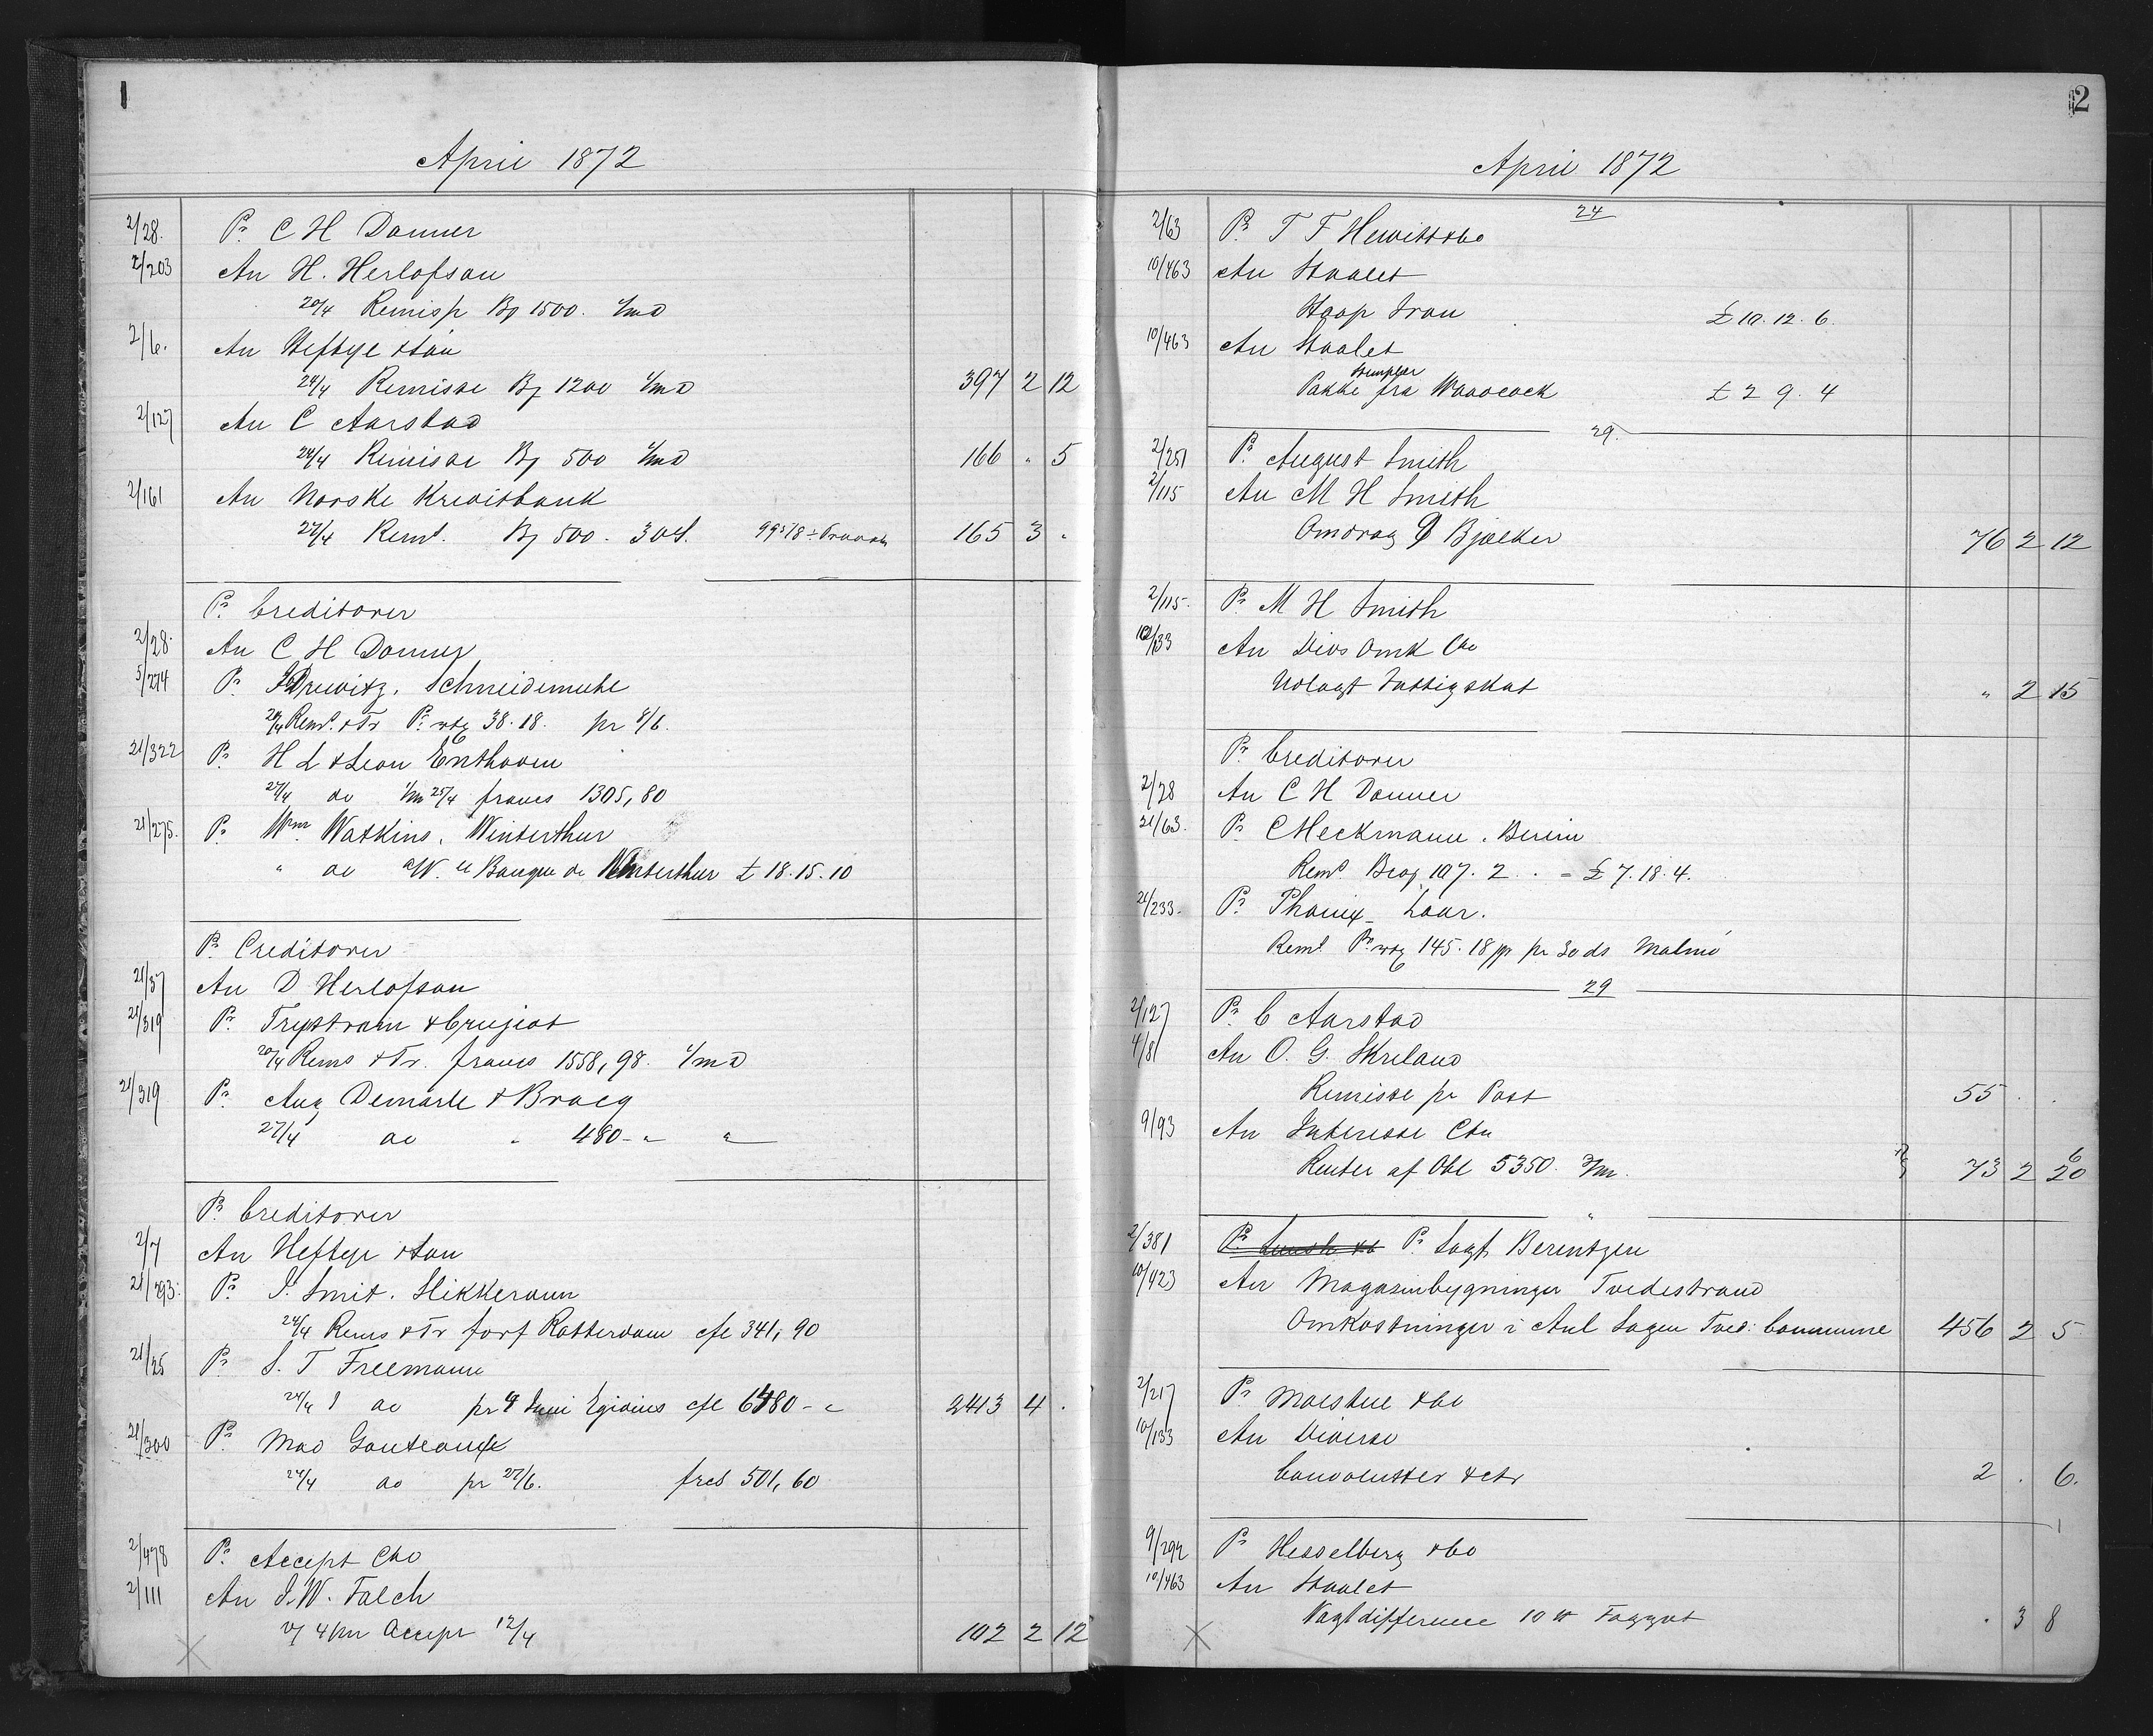 1
April 1872
2/28. Pr C H Donner
2/203 An H. Herlofson
20/4 Remisp Bf 1500. 1/md
2/6. An Heftye & Søn
24/4 Remisse Bf 1200 1/md 397 2 12
2/127 An C Aarstad
24/4 Remisse Bf 500 1/md 166 " 5
2/161 An Norske Kreditbank
27/4 Rems. Bf 500. 165 3 "
Pr Creditorer
2/28. An C H Donner
5/274 Pr Drewitz. Schneidemuhl
24/4 Rems. & Tr Pr 38.18. pr 8/6.
21/322 Pr H L & Leon Enthoven
27/4 do 25/4 francs 1305,80
21/275. Pr Wm Watkins. Winterthur
" do Banque de Winterthur £ 18.15.10
Pr Creditorer
21/37 An D Herlofson
21/319 Pr Trystram & Crujeot
20/4 Rems & Tr. francs 1558,98. 1/md
21/319 Pr Aug Demarle &
27/4 do " 480 - " "
Pr Creditorer
2/7 An Heftye & Søn
21/293. Pr J. Smit. Slikkerveer
24/4 Rems & Tr Rotterdam cfl 341,90
21/25 Pr S. T Freemann
24/4 do pr 4 Juni cfl 6480 - " 2413 4 .
21/300 Pr Mad
24/4 do pr 27/6. frcs 501,60
2/478 Pr Accept Cto
2/111 An J. W. Falch
4/m Accept 12/4 102 2 12
2
April 1872
24
2/63 Pr T F Hewitt & Co
10/463 An Staalet
Hoop Iron £ 10.12.6.
10/463 An Staalet
Stempler
Pakke fra Woodcock £ 2 9.4
29.
2/251 Pr August Smith
2/115 An M H Smith
Omdrag 9 Bjælker 76 2 12
2/115. Pr M H Smith
10/133 An Divs Omk Cto
Udlagt Fattigskat " 2 15
Pr Creditorer
2/28 An C H Donner
21/63. Pr C Heckmann. Berlin
Rems. 107.2 . = £ 7.18.4.
21/233. Pr Phønix Laar.
Rems. Pr 145.18 pr 30 ds Malmö
29
2/127 Pr C Aarstad
4/81 An O. G. Skeland
Remisse pr Post 55 . .
9/93 An Interesse Cto
Renter af Obl 5350. 73 2 20
6
2/381 Pr Sagf Berentzen
10/423 An Magasinbygninger Tvedestrand
Omkostninger i Anl Sagen Tved: Commune 456 2 5
2/217 Pr Morstue & Co
10/133 An Diverse
Convolutter & ctr 2 . 6.
9/292 Pr Hesselberg & Co
10/463 An Staalet
Vægtdifference 10 ℔ Faggot . 3 8